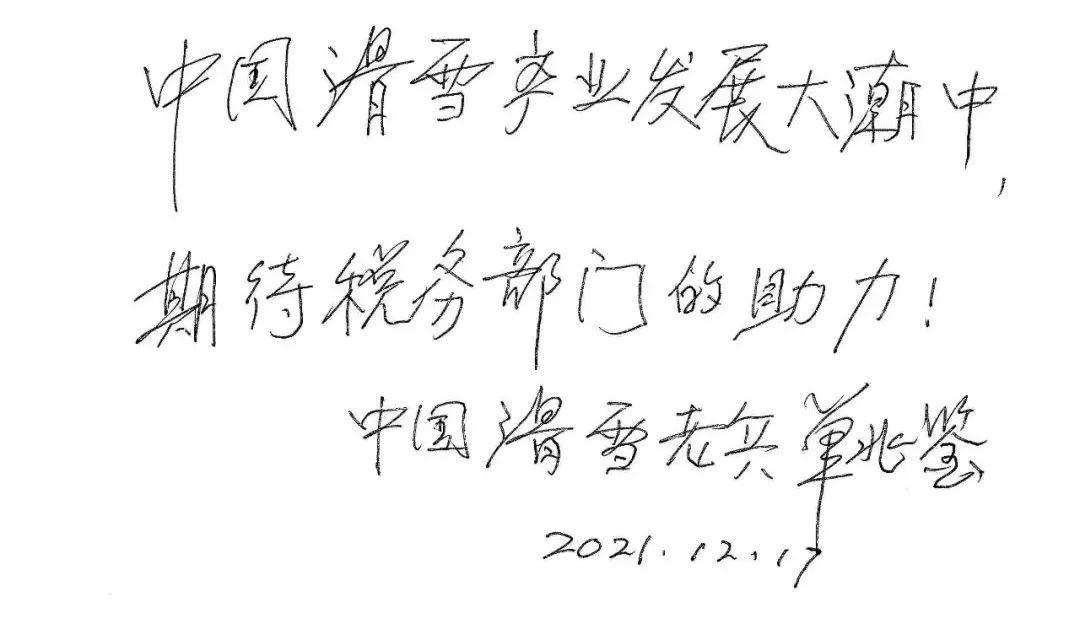 中国滑雪产业发展大潮中，
期待税务部门的助力！
中国滑雪老兵单兆鉴
2021.12.17